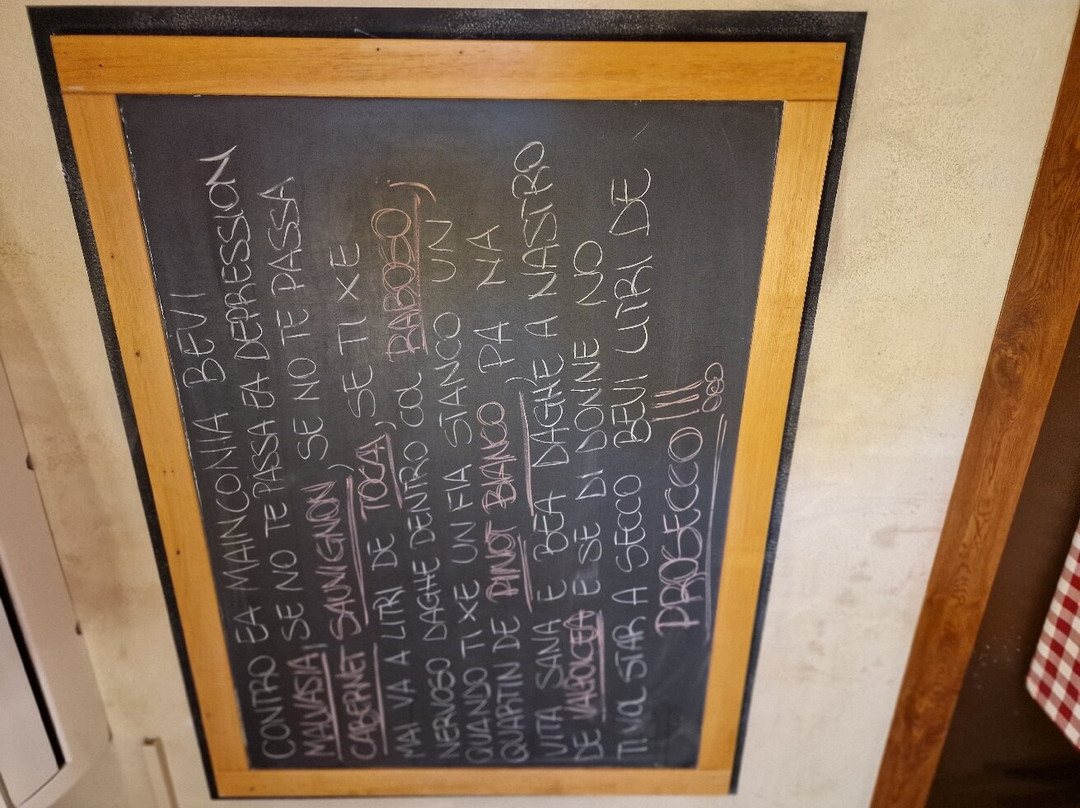 CONTRO EA MAINCONIA BEVI
MALVASIA, SE NO TE PASSA EA DEPRESSION
CABERNET SAUVIGNON, SE NO TE PASSA
MAI VA A LITRI DE TOCAI, SE TI XE
NERVOSO DAGHE DENTRO COL RABOSO,
QUANDO TI XE UN FIA STANCO UN
QUARTIN DE PINOT BIANCO, PA NA
VITA SANA E BEA DAGHE A NASTRO
DE VALPOICEA E SE DI DONNE NO
TI VOL STAR A SECCO BEVI LITRI DE
PROSECCO !!!